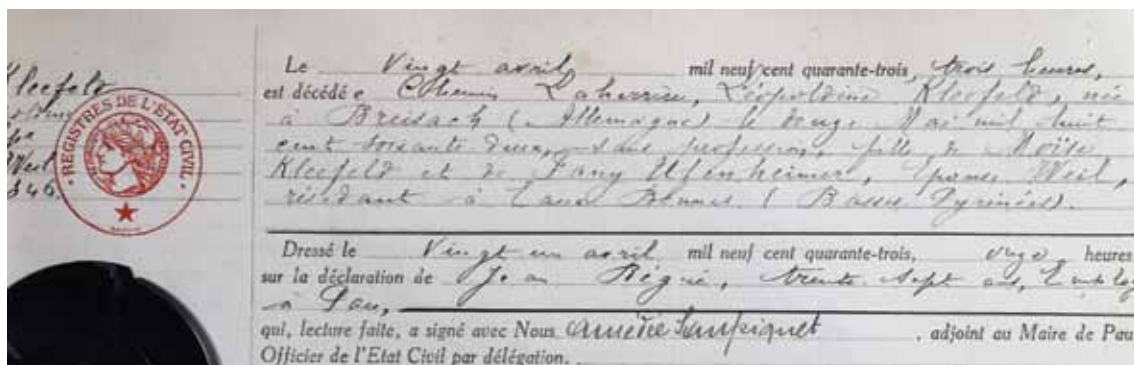 Kleefeld
Weil
346
REGISTRES DE L'ÉTAT CIVIL
Le Vingt avril mil neuf cent quarante-trois, trois heures,
est décédé e Chemin Laherrère, Léopoldine Kleefeld, née
à Breisach (Allemagne) le onze Mai mil huit
cent soixante deux, sans profession, fille de Moïse
Kleefeld et de Fany Ufenheimer, épouse Weil,
résidant à Eaux Bonnes (Basses Pyrénées).
Dressé le Vingt un avril mil neuf cent quarante-trois, onze heures
sur la déclaration de Jean Bégué, trente sept ans, Employ
à Pau,
qui, lecture faite, a signé avec Nous , adjoint au Maire de Pau
Officier de l'Etat Civil par délégation.